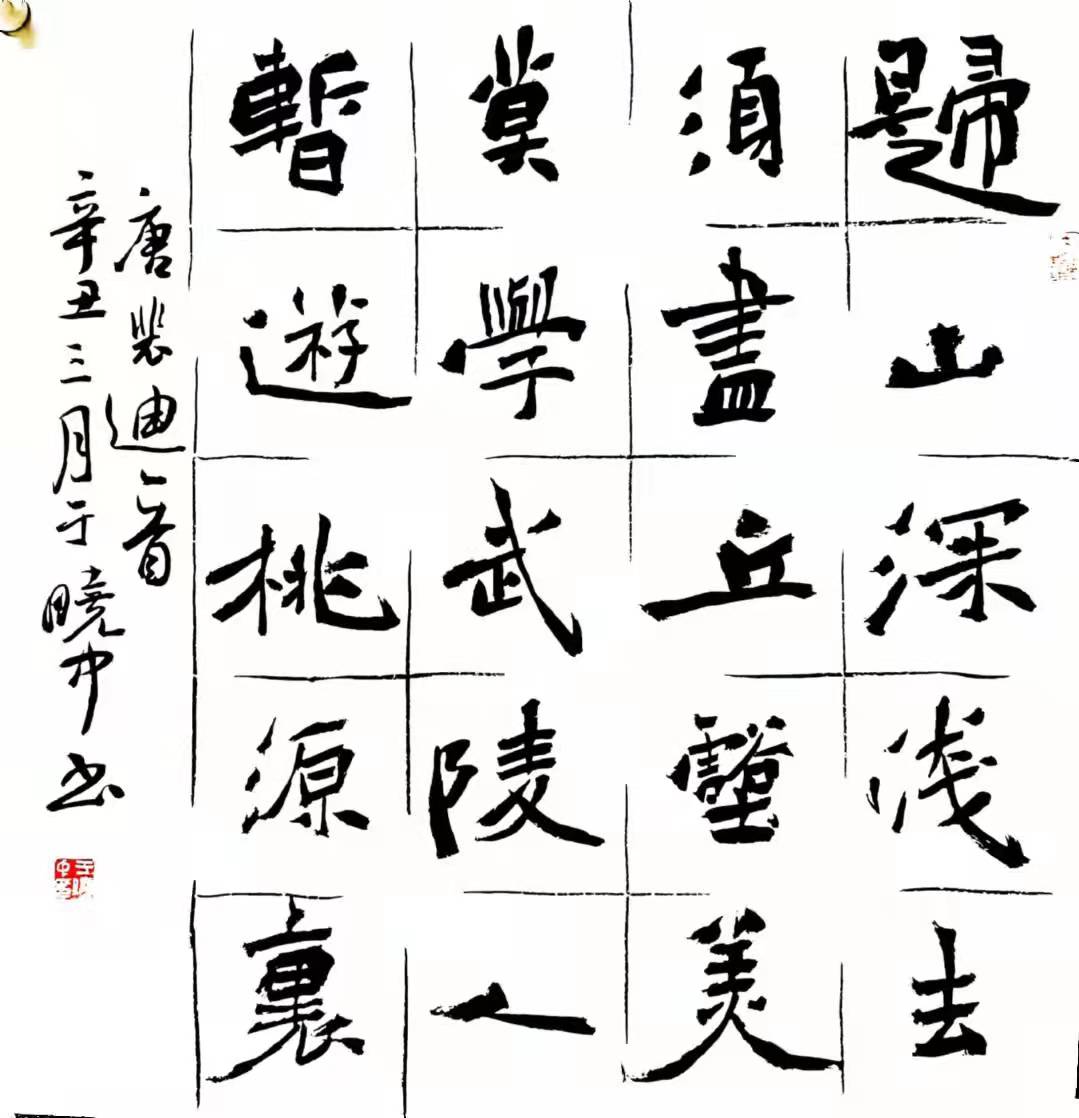 歸山深淺去
須盡丘壑美
莫學武陵人
暫遊桃源裏
唐裴迪一首
辛丑三月于曉中书